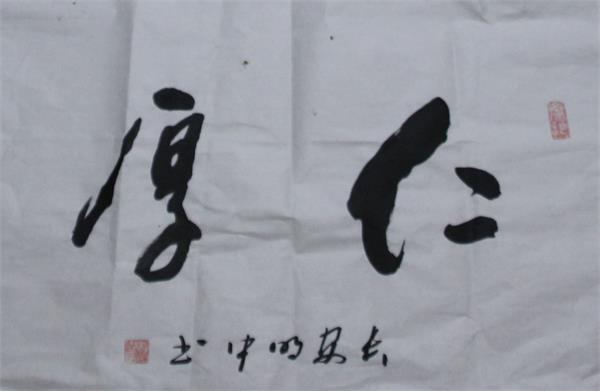 仁厚
长安明中书